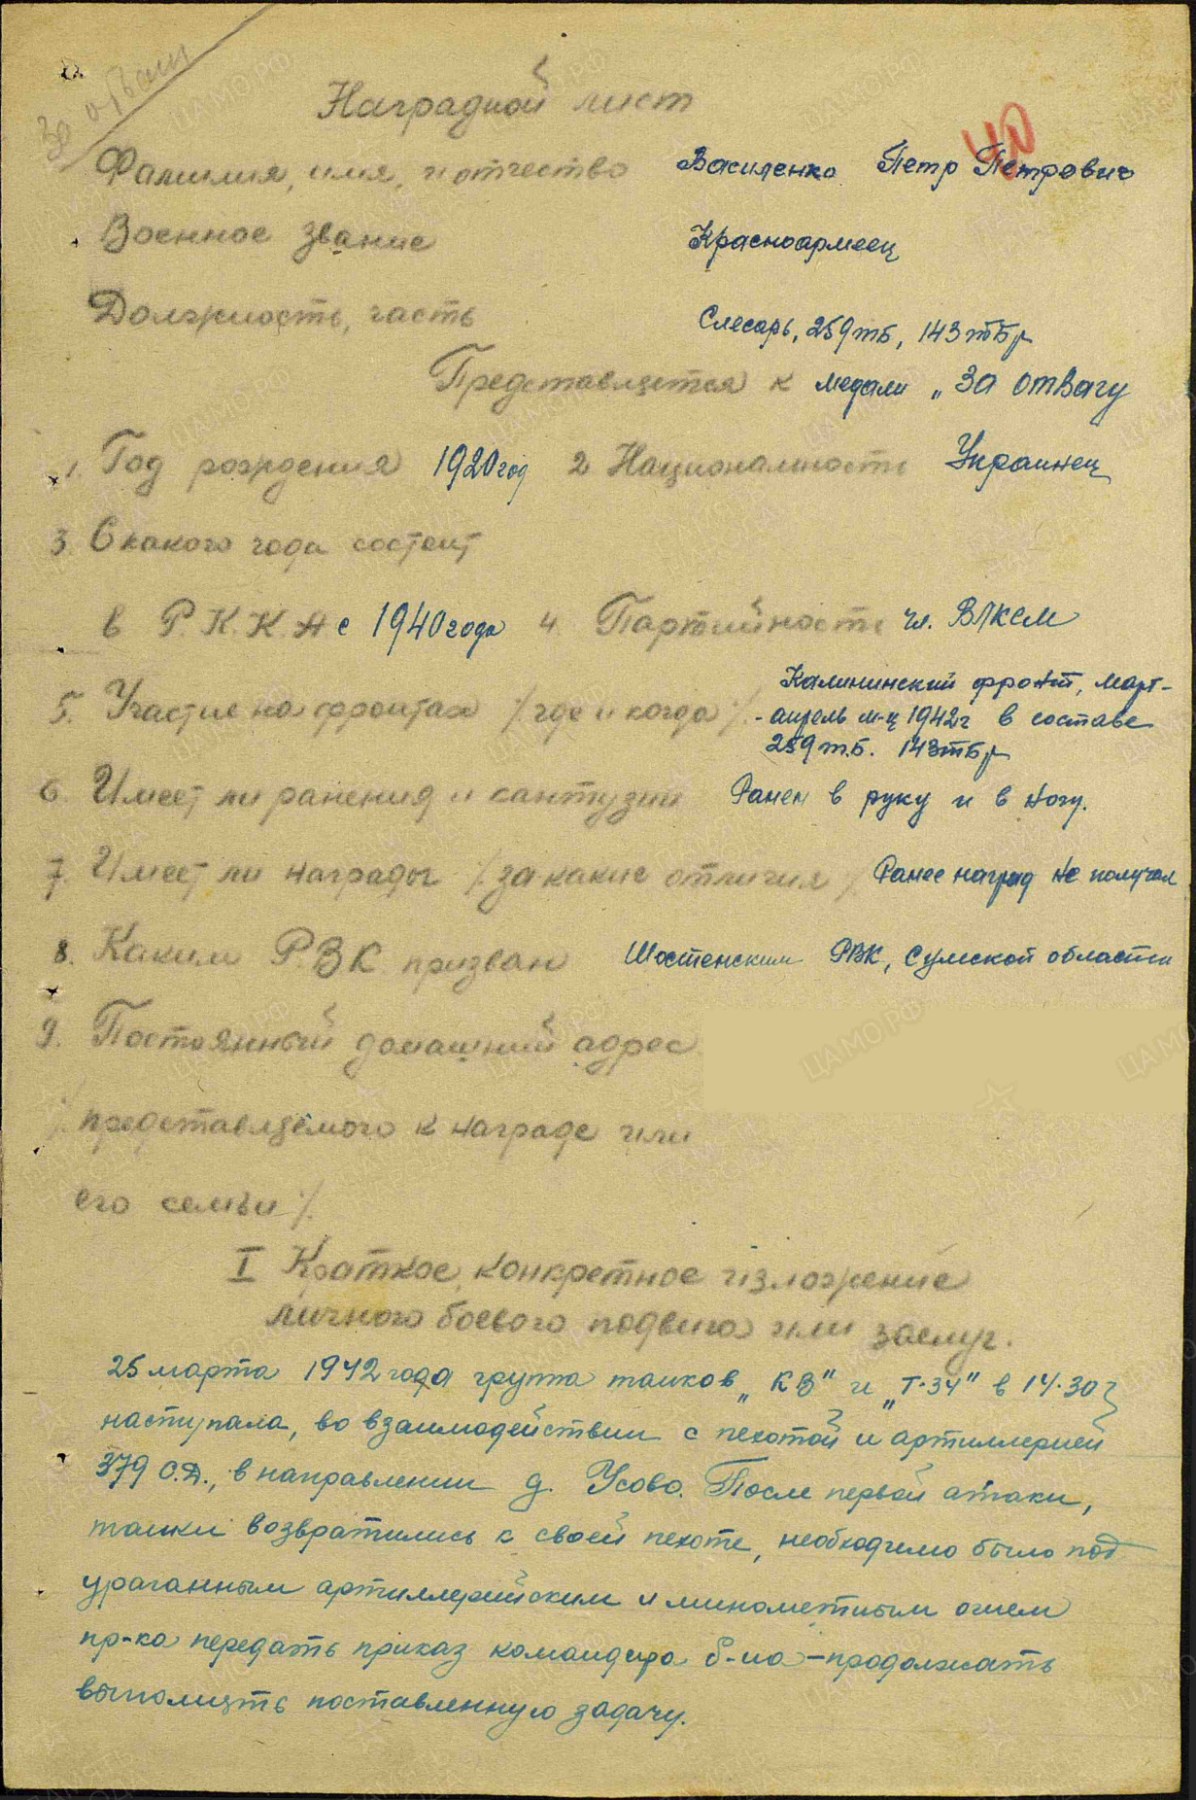 За отваги
Наградной лист
40
Фамилия, имя, и отчество Василенко Петр Петрович
Военное звание Красноармеец
Должность, часть Слесарь, 259 тб, 143 тбр
Представляется к медали „За отвагу
1. Год рождения 1920 год 2 Националность Украинец
3. С какого года состоит
в Р.К.К.А с 1940 года 4. Партийность чл. ВЛКСМ
5. Участие на фронтах /где и когда/. Калининский фронт, март-
-апрель м-ц 1942г в составе
259 т.б. 143 тбр
6. Имеет ли ранения и кантузии Ранен в руку и в ногу.
7. Имеет ли награды /за какие отличия/ Ранее наград не получал
8. Каким Р.В.К. призван Шостенским РВК, Сумской области
9. Постоянный домашний адрес
/представляемого к награде или
его семьи/.
I Краткое, конкретное изложение
личного боевого подвига или заслуг.
25 марта 1942 года группа танков „КВ" и „Т-34" в 14.30
наступала, во взаимодействии с пехотой и артиллерией
379 С.Д., в направлении д. Усово. После первой атаки,
танки возвратились к своей пехоте, необходимо было под
ураганным артиллерийским и минометным огнем
пр-ка передать приказ командира б-на - продолжать
выполнять поставленную задачу.
ЦАМО РФ